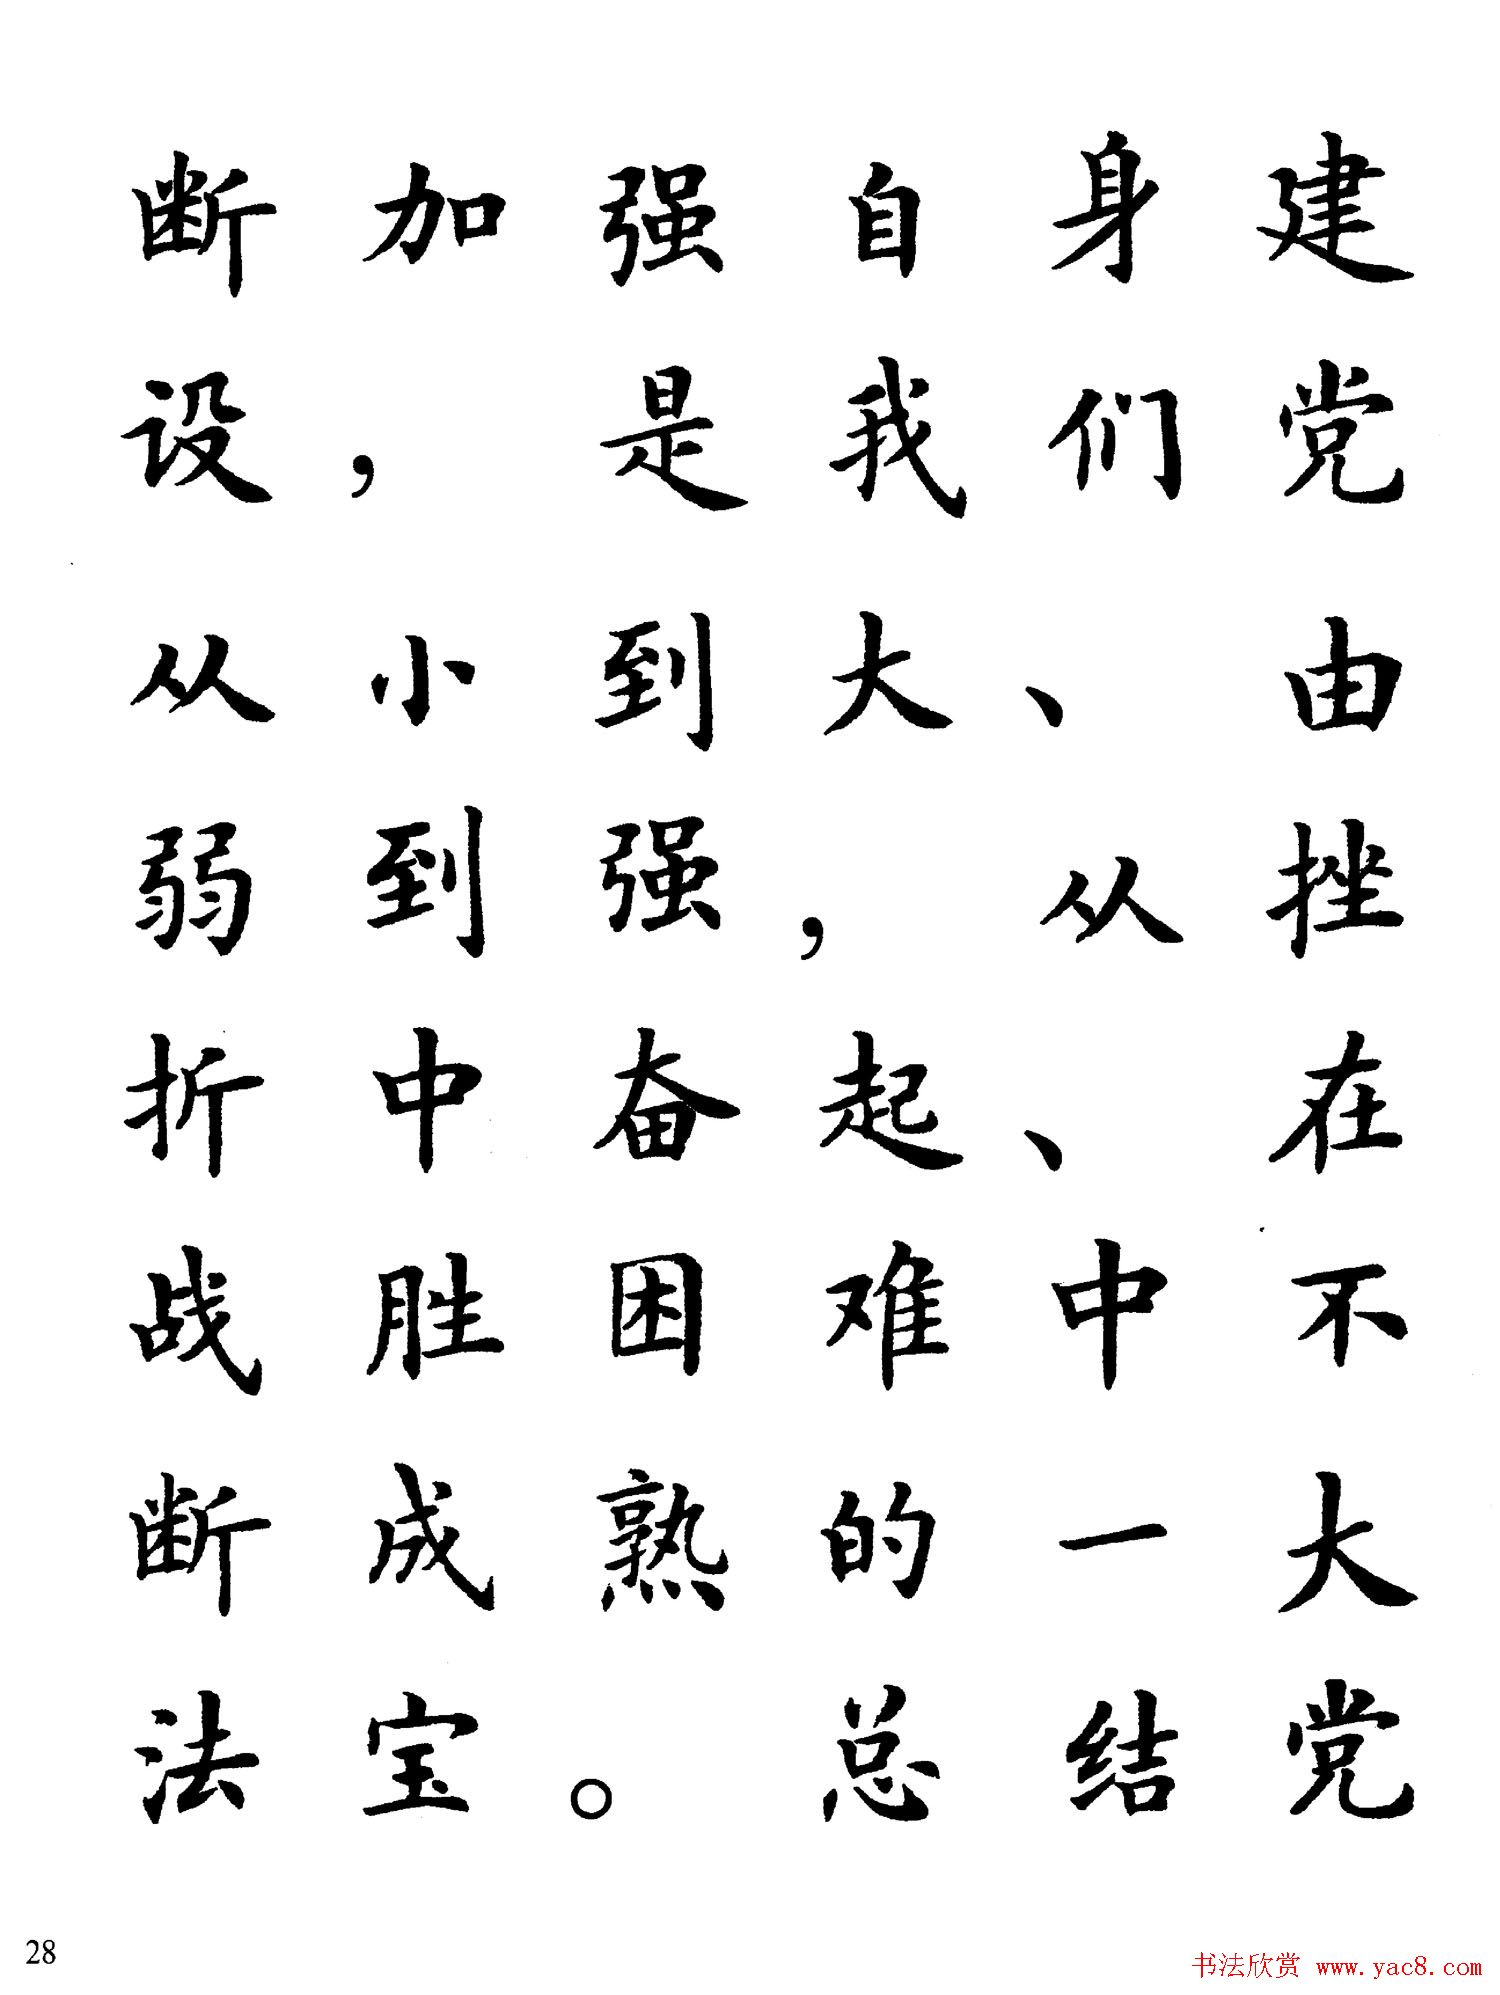 断加强自身建
设，是我们党
从小到大、由
弱到强，从挫
折中奋起、在
战胜困难中不
断成熟的一大
法宝。总结党
28
书法欣赏 www.yac8.com